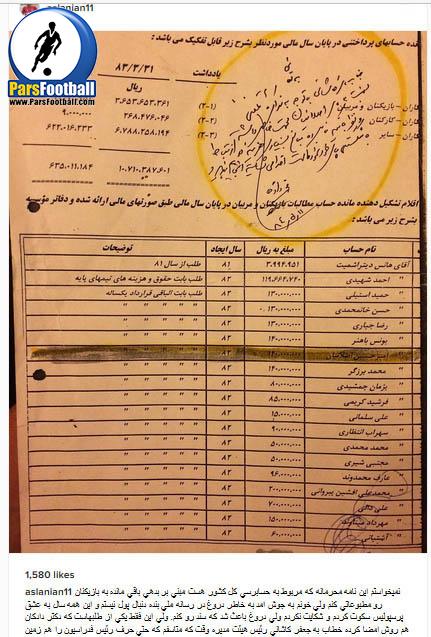 aslanian11
ParsFootball
www.ParsFootball.com
مانده حسابهای پرداختنی در پایان سال مالی موردنظر بشرح زیر قابل تفکیک می باشد :
یادداشت ۸۳/۳/۳۱
ریال
کاران - بازیکنان و مربیان (۲-۱) ۳.۶۵۳.۶۵۳.۳۶۱
کاران - کارکنان (۲-۲) ۲۶۸.۴۷۶.۰۴۶ ۹.۰۰۰.۰۰۰
کاران - سایر (۲-۳) ۶.۷۸۸.۲۵۸.۱۹۴ ۶۲۲.۰۱۶.۳۳۳
۱۰.۷۱۰.۳۸۷.۶۰۱ ۶۳۵.۰۱۱.۱۸۴
اقلام تشکیل دهنده مانده حساب مطالبات بازیکنان و مربیان در پایان سال مالی طبق صورتهای مالی ارائه شده و دفاتر مؤسسه
بشرح زیر می باشد :
نام حساب مبلغ به ریال سال ایجاد توضیحات
آقای هانس دیتراشمیت ۳.۹۹۴.۹۵۱ ۸۱ طلب از سال ۸۱
" احمد شهیدی ۱۱۹.۶۶۴.۷۴۰ ۸۲ طلب بابت حقوق و هزینه های تیمهای پایه
" حمید استیلی ۱۳۰.۰۰۰.۰۰۰ ۸۲ طلب بابت الباقی قرارداد یکساله
" حسن خانمحمدی ۱۳۰.۰۰۰.۰۰۰ ۸۲ " "
" رضا جباری ۱۳۰.۰۰۰.۰۰۰ ۸۲ " "
" یونس باهنر ۱۴۰.۰۰۰.۰۰۰ ۸۲ " "
" امیرحسین اصلانیان ۸۲ " "
" محمد برزگر ۱۴۰.۰۰۰.۰۰۰ ۸۲ " "
" پژمان جمشیدی ۸۰.۰۰۰.۰۰۰ ۸۲ " "
" فرشید کریمی ۸۵.۰۰۰.۰۰۰ ۸۲ " "
" علی سلمانی ۱۵.۰۰۰.۰۰۰ ۸۲ " "
" سهراب انتظاری ۹۰.۰۰۰.۰۰۰ ۸۲ " "
" محمد محمدی ۵۰.۰۰۰.۰۰۰ ۸۲ " "
" مجتبی شیری ۵۰.۰۰۰.۰۰۰ ۸۲ " "
" عارف محمدوند ۹۶.۰۰۰.۰۰۰ ۸۲ " "
" محمدعلی افشین پیروانی ۲۰۰.۰۰۰.۰۰۰ ۸۲ " "
" علی ۷۰۰.۰۰۰.۰۰۰ ۸۲ " "
" مهرداد میناوند ۱۵۰.۰۰۰.۰۰۰ ۸۲ " "
" آشتیانی ۶۰.۰۰۰.۰۰۰ ۸۲ " "
1,580 likes
aslanian11 نمیخواستم این نامه محرمانه که مربوط به حسابرسي کل کشور هست مبني بر بدهي باقي مانده به بازیکنان
رو مطبوعاتي کنم ولي خونم به جوش امد به خاطر دروغ در رسانه ملي بنده دنبال پول نیستم و این همه سال به عشق
پرسپولیس سکوت کردم و شکایت نکردم ولي دروغ باعث شد که سند رو کنم. ولي این فقط یکي از طلبهاست که دکتر دادکان
هم روش امضا کرده خطاب به جعفر کاشاني رئیس هیئت مدیره وقت که متاسفم که حتي حرف رئیس فدراسیون را هم زمین